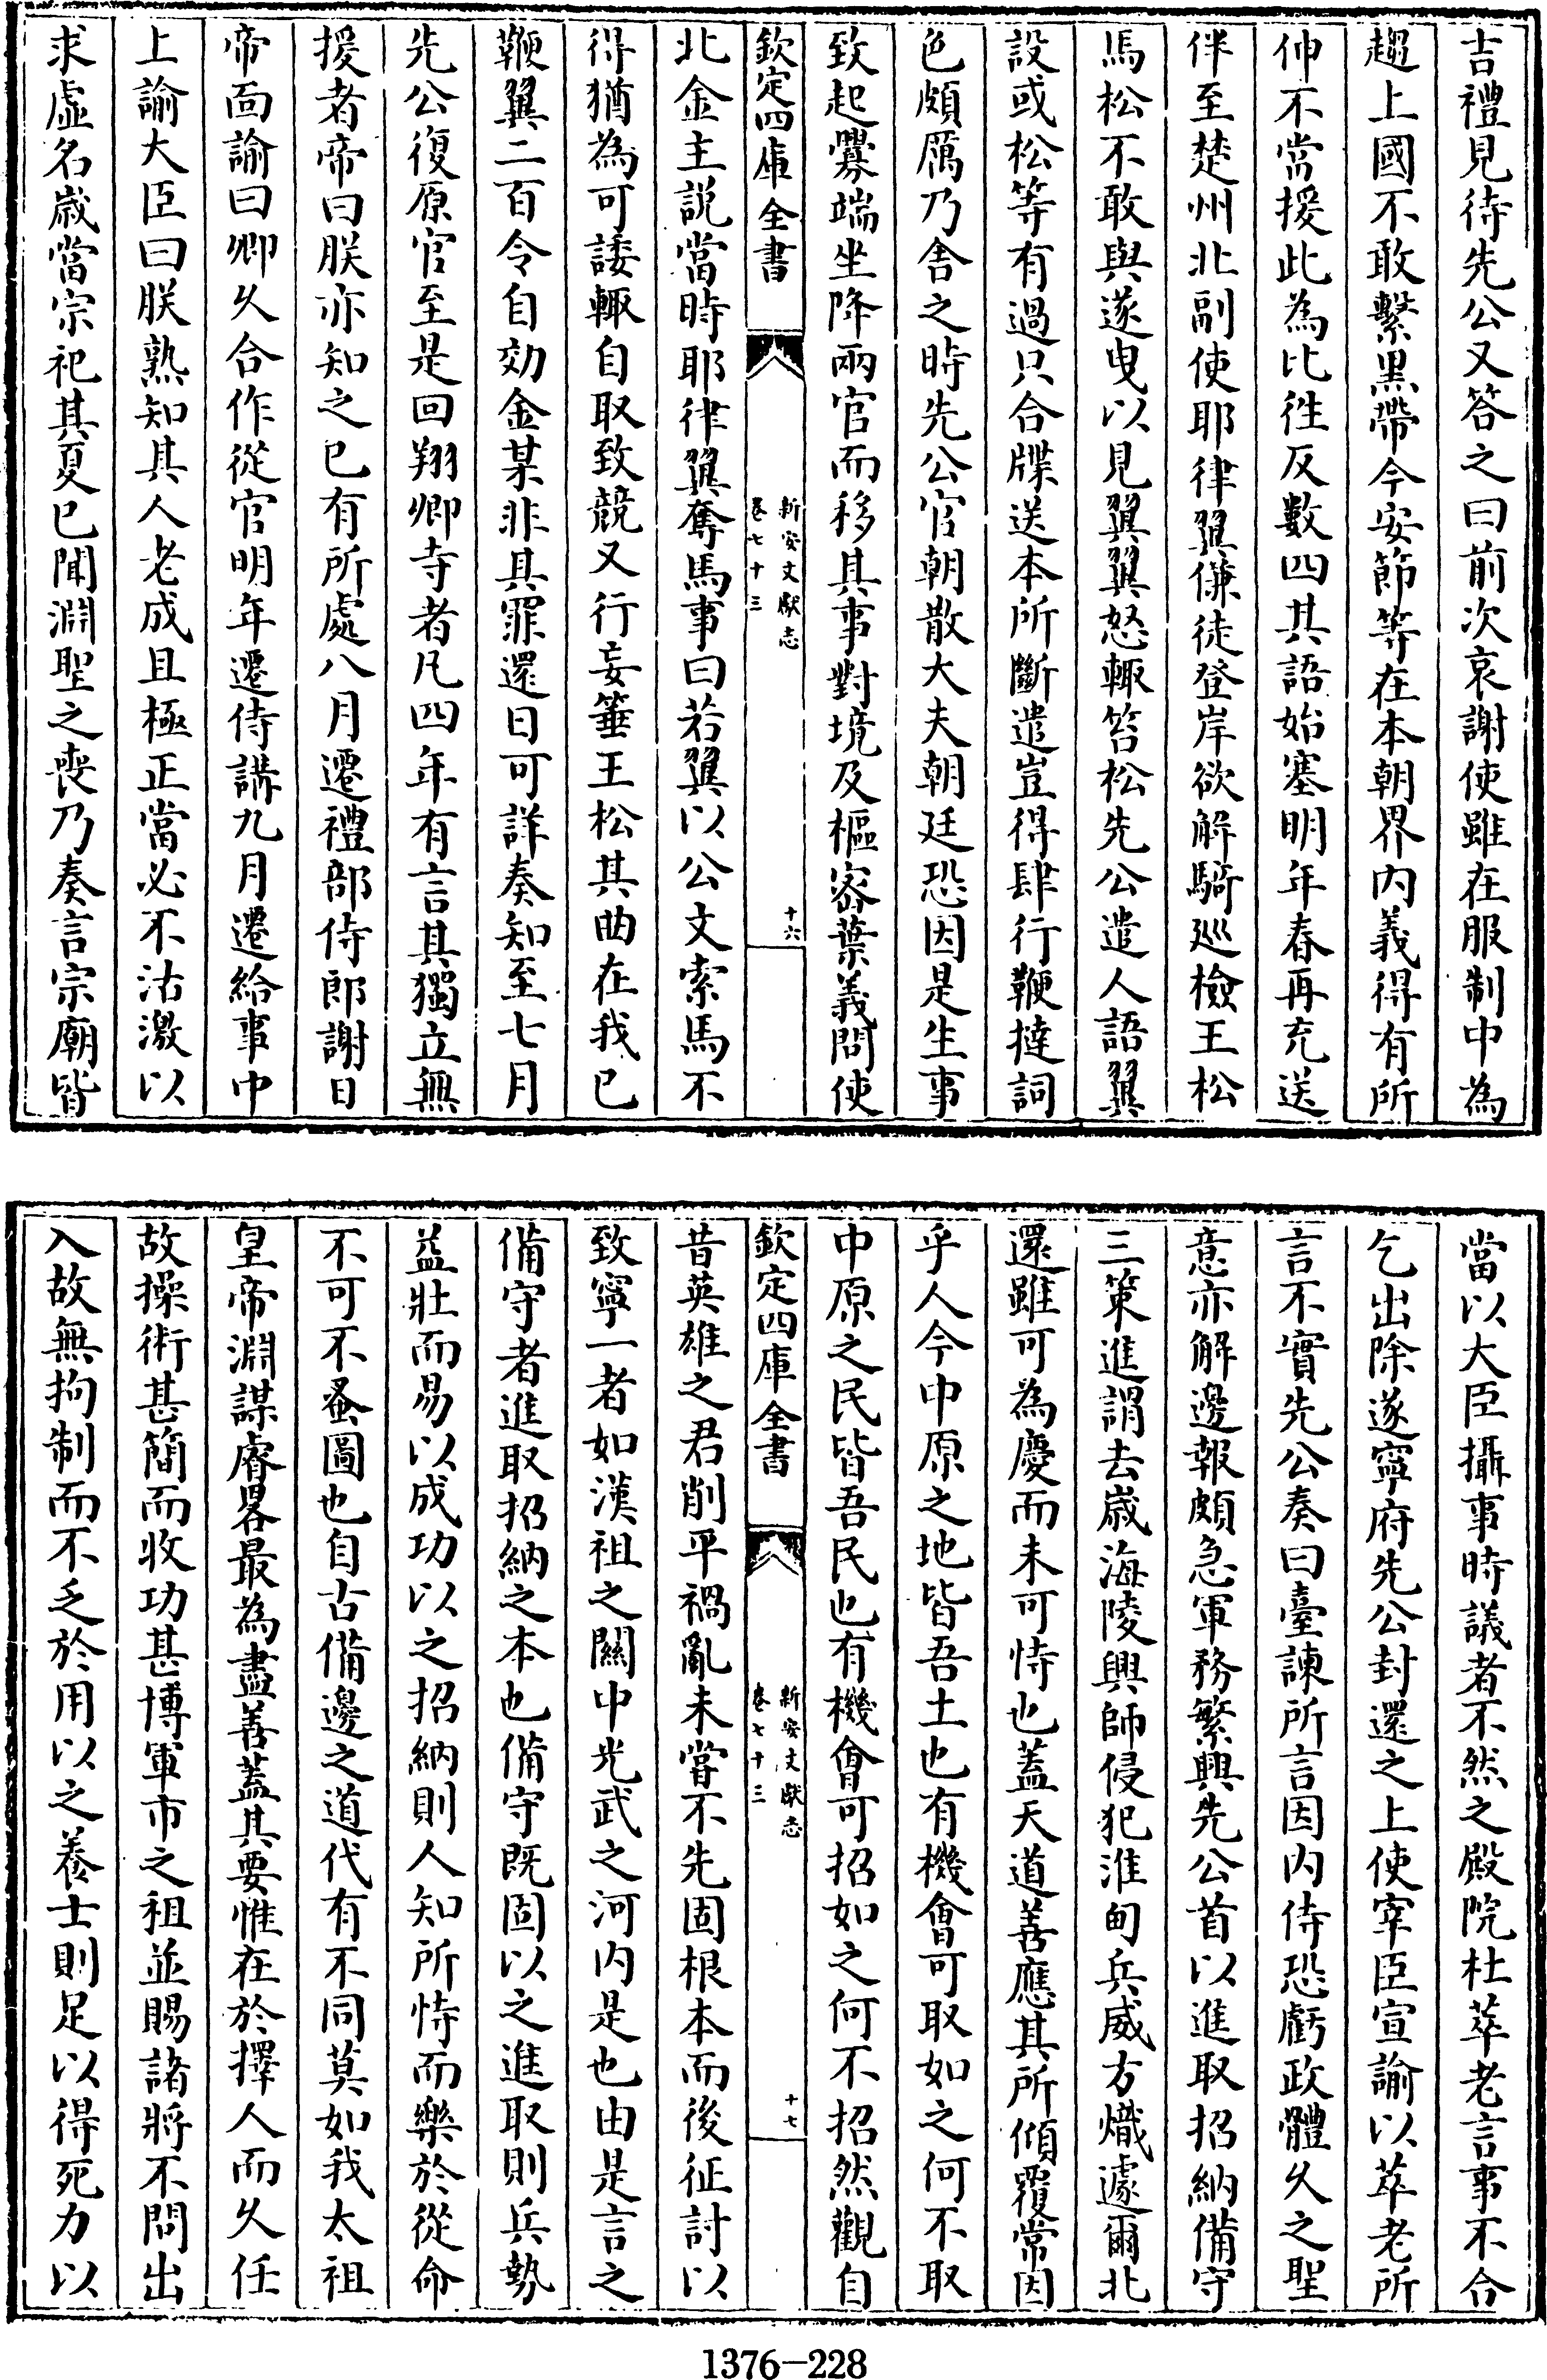 吉禮見待先公又答之曰前次哀謝使雖在服制中為
趨上國不敢繫黑帶今安節等在本朝界內義得有所
伸不當援此為比徃反數四其語始塞明年春再充送
伴至楚州北副使耶律翼傔徒登岸欲解騎巡檢王松
馬松不敢與遂曳以見翼翼怒輒笞松先公遣人語翼
設或松等有過只合牒送本所斷遣豈得肆行鞭撻詞
色頗厲乃舍之時先公官朝散大夫朝廷恐因是生事
致起釁端坐降兩官而移其事對境及樞宻葉義問使
欽定四庫全書
新安文獻志
卷七十三
十六
北金主説當時耶律翼奪馬事曰若翼以公文索馬不
得猶為可諉輒自取致競又行妄箠王松其曲在我已
鞭翼二百令自効金某非其罪還日可詳奏知至七月
先公復原官至是回翔卿寺者凡四年有言其獨立無
援者帝曰朕亦知之已有所處八月遷禮部侍郎謝日
帝面諭曰卿乆合作從官明年遷侍講九月遷給事中
上諭大臣曰朕熟知其人老成且極正當必不沽激以
求虛名歲當宗祀其夏已聞淵聖之喪乃奏言宗廟皆
當以大臣攝事時議者不然之殿院杜莘老言事不合
乞出除遂寧府先公封還之上使宰臣宣諭以莘老所
言不實先公奏曰臺諫所言因内侍恐虧政體乆之聖
意亦解邊報頗急軍務繁興先公首以進取招納備守
三策進謂去歲海陵興師侵犯淮甸兵威方熾遽爾北
還雖可為慶而未可恃也蓋天道善應其所傾覆常因
乎人今中原之地皆吾土也有機㑹可取如之何不取
中原之民皆吾民也有機㑹可招如之何不招然觀自
欽定四庫全書
新安文獻志
卷七十三
十七
昔英雄之君削平禍亂未嘗不先固根本而後征討以
致寧一者如漢祖之關中光武之河内是也由是言之
備守者進取招納之本也備守既固以之進取則兵勢
益壯而易以成功以之招納則人知所恃而樂於從命
不可不蚤圖也自古備邊之道代有不同莫如我太祖
皇帝淵謀睿畧最為盡善蓋其要惟在於擇人而乆任
故操術甚簡而收功甚博軍市之租並賜諸將不問出
入故無拘制而不乏於用以之養士則足以得死力以
1376-228